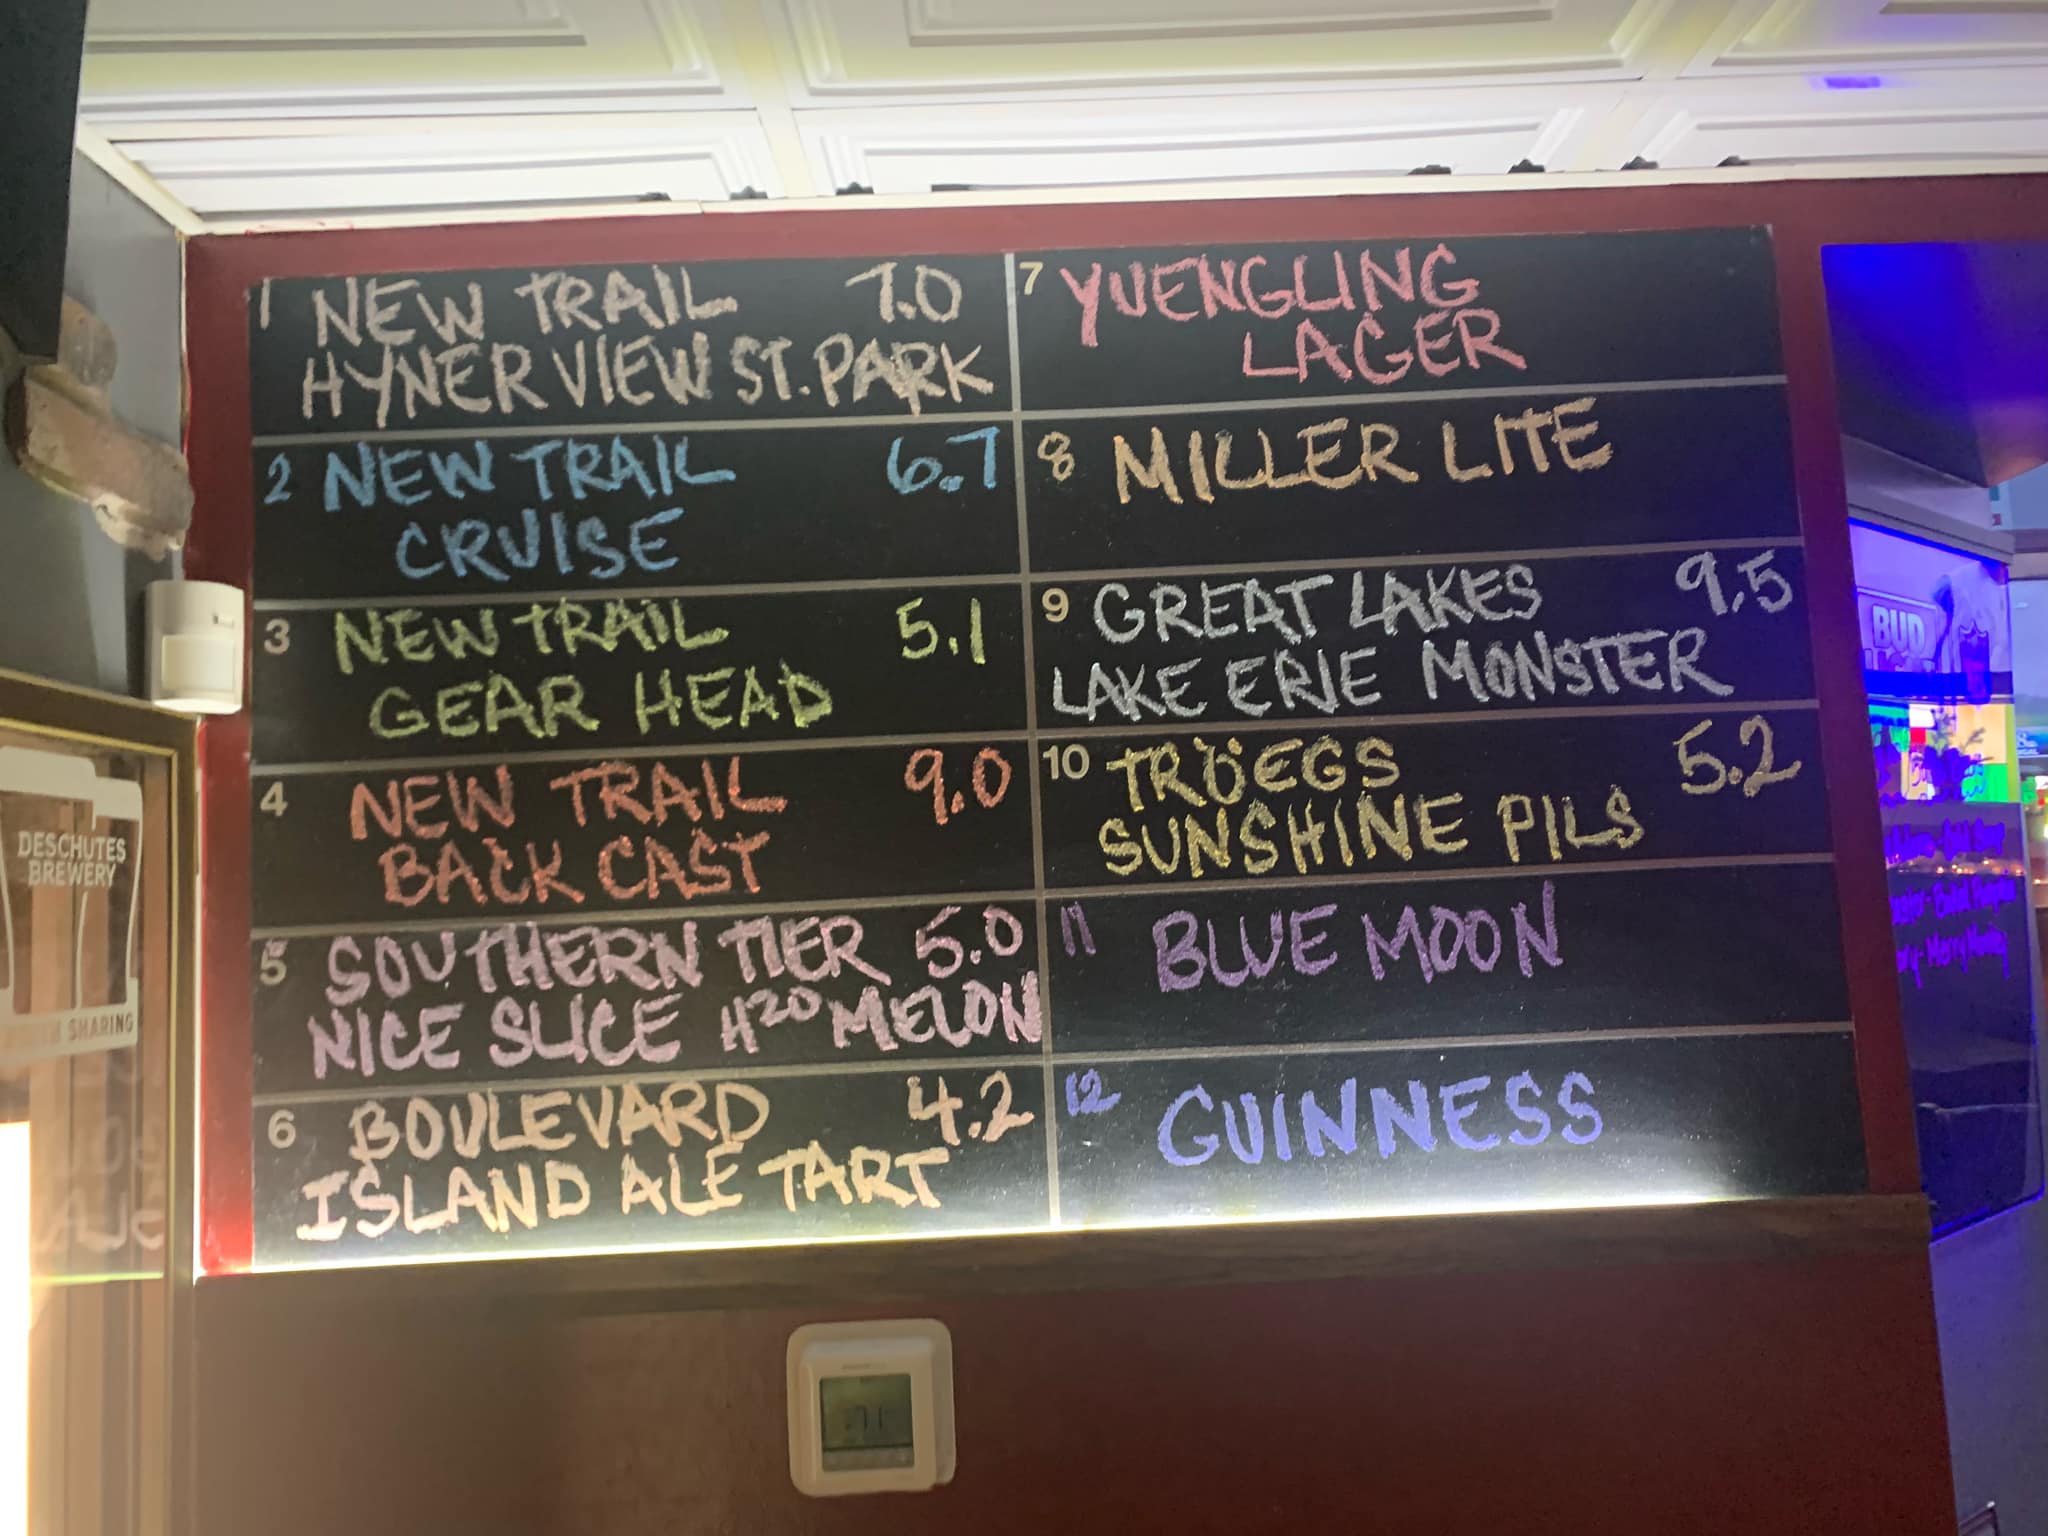 1 NEW TRAIL 7.0
HYNER VIEW ST. PARK
2 NEW TRAIL 6.7
CRUISE
3 NEW TRAIL 5.1
GEAR HEAD
4 NEW TRAIL 9.0
BACK CAST
5 SOUTHERN TIER 5.0
NICE SLICE H20 MELON
6 BOULEVARD 4.2
ISLAND ALE TART
7 YUENGLING
LAGER
8 MILLER LITE
9 GREAT LAKES 9.5
LAKE ERIE MONSTER
10 TRÖEGS 5.2
SUNSHINE PILS
11 BLUE MOON
12 GUINNESS
DESCHUTES
BREWERY
SHARING
BUD
LIGHT
71